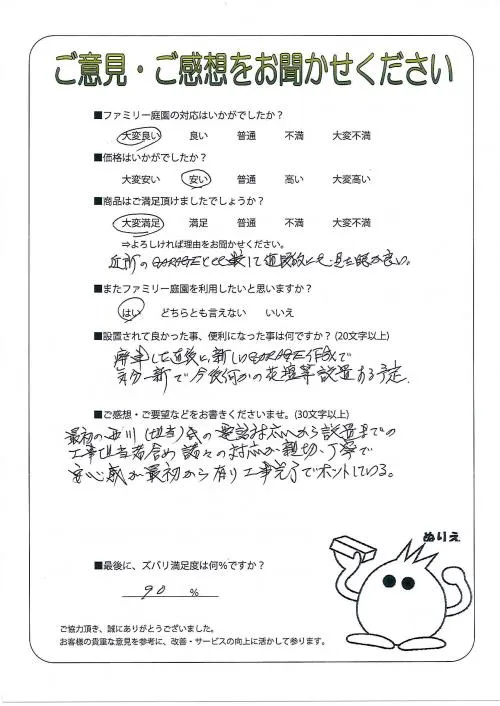 ご意見・ご感想をお聞かせください
■ファミリー庭園の対応はいかがでしたか?
大変良い 良い 普通 不満 大変不満
■価格はいかがでしたか?
大変安い 安い 普通 高い 大変高い
■商品はご満足頂けましたでしょうか?
大変満足 満足 普通 不満 大変不満
⇒よろしければ理由をお聞かせください。
近所のGARAGEと比較して道路的にも見た感が良い。
■またファミリー庭園を利用したいと思いますか?
はい どちらとも言えない いいえ
■設置されて良かった事、便利になった事は何ですか?(20文字以上)
した直後に、新しいGARAGE で
気分一新で今後何かの花壇等設置する予定.
■ご感想・ご要望などをお書きくださいませ。(30文字以上)
最初の西川(担当)氏の電話対応から設置までの
工事担当者含め諸々の対応が親切、丁寧で
安心感が最初から有り工事完了でホットしている。
ぬりえ
■最後に、ズバリ満足度は何%ですか?
90 %
ご協力頂き、誠にありがとうございました。
お客様の貴重な意見を参考に、改善・サービスの向上に活かして参ります。